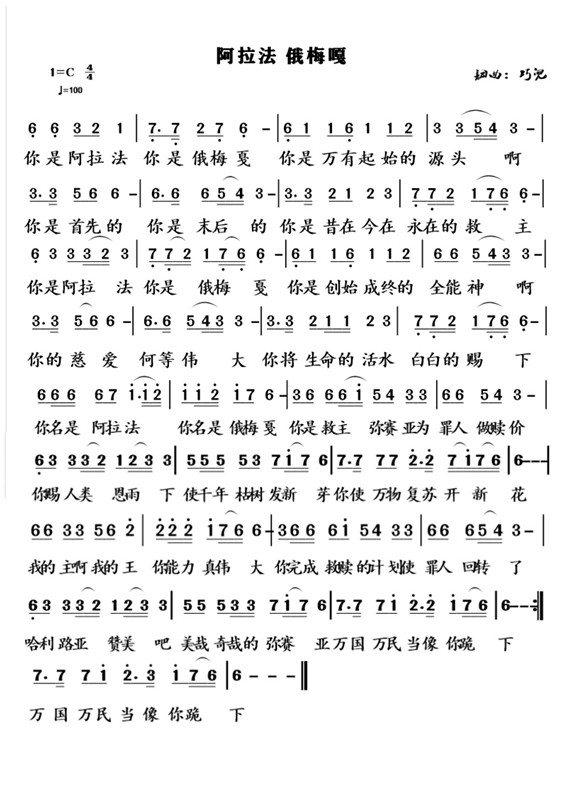 阿拉法 俄梅嘎
1=C 4/4
♩=100
6 6 3 2 1 | 7· 7 2 7 6 - | 6 1 1 6 1 2 | 3 3 5 4 3 - |
你是阿拉法 你是俄梅戛 你是万有起始的 源头 啊
3·3 5 6 6 - | 6·6 6 5 4 3 - | 3·3 2 1 2 3 | 7 7 2 1 7 6 6 - |
你是首先的 你是 末后 的 你是 昔在今在 永在的救 主
6 3 3 3 2 3 | 7 7 2 1 7 6 6 - | 6 1 1 6 1 2 | 3 3 5 4 3 - |
你是阿拉 法 你是 俄梅 戛 你是 创始 成终的 全能神 啊
3·3 5 6 6 - | 6·6 6 5 4 3 - | 3·3 2 1 2 3 | 7 7 2 1 7 6 6 - |
你的 慈 爱 何等 伟 大 你将 生命的 活水 白白的 赐 下
6 6 6 6 7 1·1 2 | 1 1 2 1 7 6 - | 3 6 6 6 1 5 4 3 3 | 6 6 5 4 3 3 |
你名是 阿拉法 你名是 俄梅戛 你是救主 弥赛 亚为 罪人 做赎价
6 3 3 3 2 1 2 3 3 | 5 5 5 5 3 7 1 7 6 | 7·7 7 7 2·2 7 1 7 6 | 6 - - - |
你赐人类 恩雨 下 使千年 枯树发新 芽你使 万物复苏 开 新 花
6 6 3 3 5 6 2 | 2 2 2 1 7 6 - | 3 6 6 6 1 5 4 3 3 | 6 6 6 5 4 3 - |
我的主啊我的王 你能力 真伟 大 你完成 救赎的计划使 罪人 回转 了
6 3 3 3 2 1 2 3 3 | 5 5 5 5 3 3 7 1 7 6 | 7·7 7 1 2·3 1 7 6 | 6 - - - :‖
哈利路亚 赞美 吧 美哉 奇哉的 弥赛 亚万国 万民 当像 你跪 下
7·7 7 1 2·3 1 7 6 | 6 - - - ‖
万国 万民 当像 你跪 下